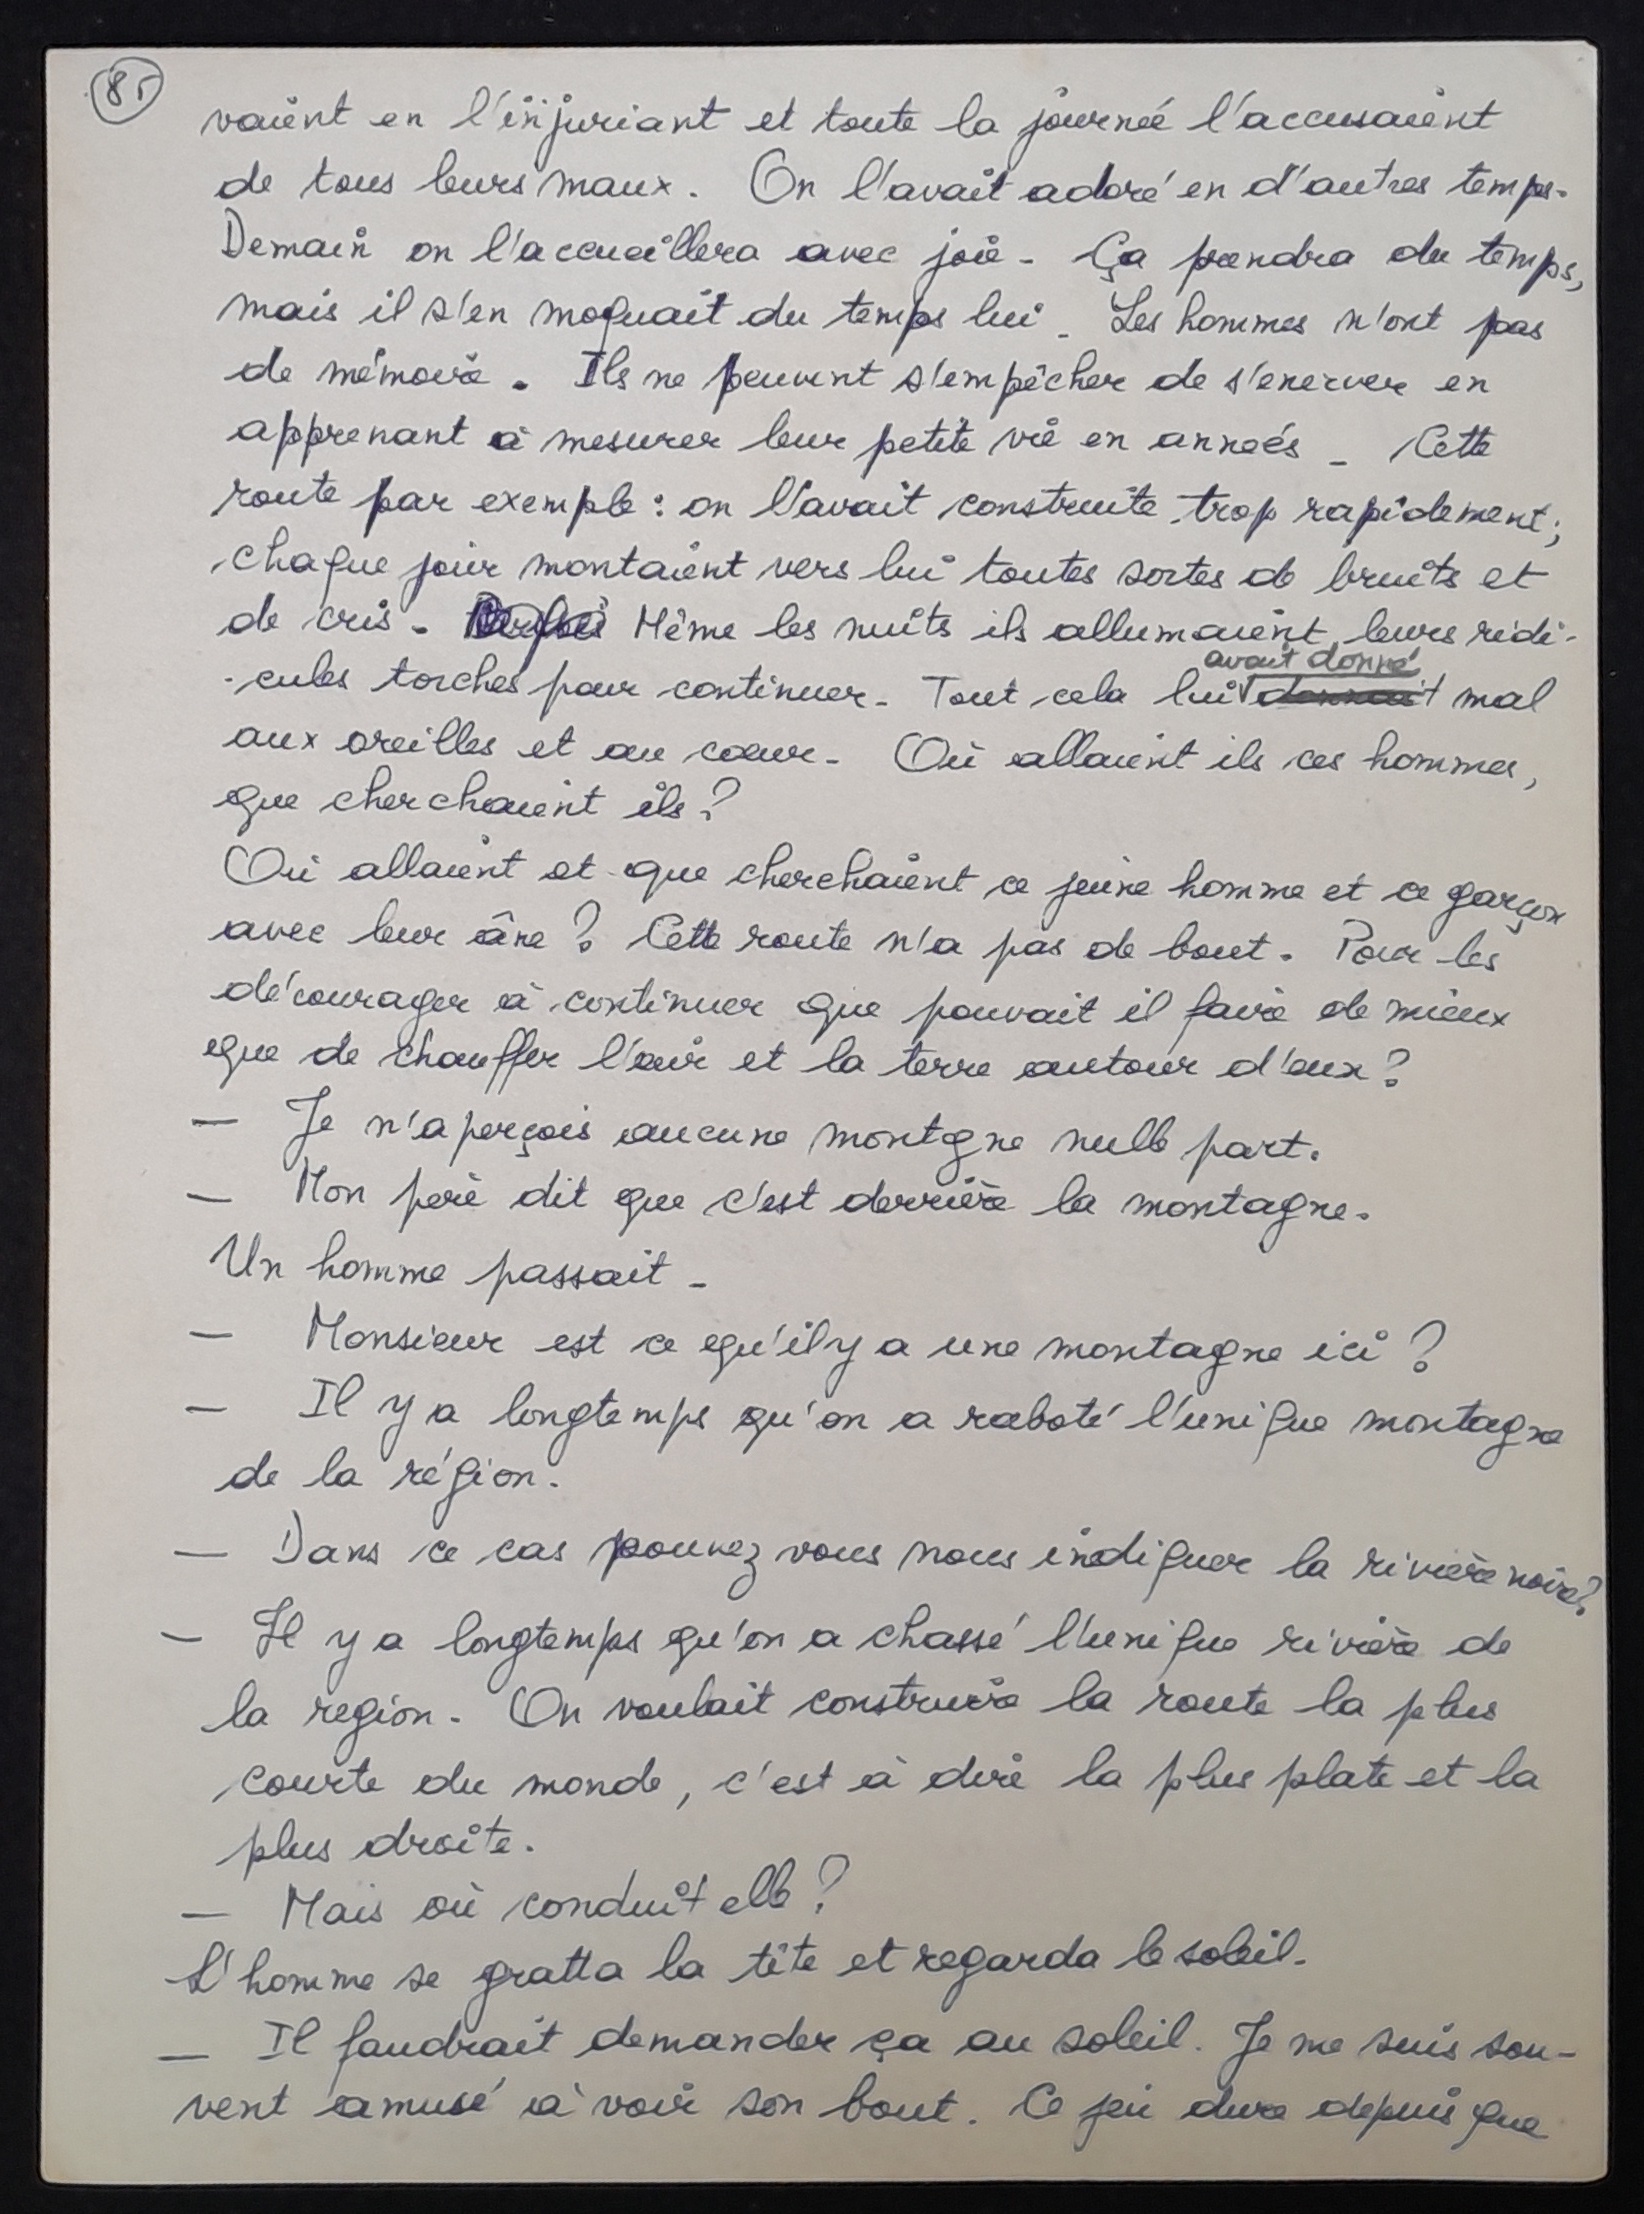 85
vaient en l'injuriant et toute la journée l'accusaient
de tous leurs maux. On l'avait adoré en d'autres temps.
Demain on l'accueillera avec joie. Ça prendra du temps,
mais il s'en moquait du temps lui. Les hommes n'ont pas
de mémoire. Ils ne peuvent s'empêcher de s'enerver en
apprenant à mesurer leur petite vie en années. Cette
route par exemple : on l'avait construite trop rapidement ;
chaque jour montaient vers lui toutes sortes de bruits et
de cris. Même les nuits ils allumaient leurs ridi-
avait donné
-cules torches pour continuer. Tout cela lui donnait mal
aux oreilles et au cœur. Où allaient ils ces hommes,
que cherchaient ils ?
Où allaient et que cherchaient ce jeune homme et ce garçon
avec leur âne ? Cette route n'a pas de bout. Pour les
décourager à continuer que pouvait il faire de mieux
que de chauffer l'air et la terre autour d'eux ?
— Je n'aperçois aucune montgne nulle part.
— Mon père dit que c'est derrière la montagne.
Un homme passait.
— Monsieur est ce qu'il y a une montagne ici ?
— Il y a longtemps qu'on a raboté l'unique montagne
de la région.
— Dans ce cas pouvez vous nous indiquer la rivière noire ?
— Il y a longtemps qu'on a chassé l'unique rivière de
la region. On voulait construire la route la plus
courte du monde, c'est à dire la plus plate et la
plus droite.
— Mais où conduit elle ?
L'homme se gratta la tête et regarda le soleil.
— Il faudrait demander ça au soleil. Je me suis sou-
vent amusé à voir son bout. Ce jeu dure depuis que